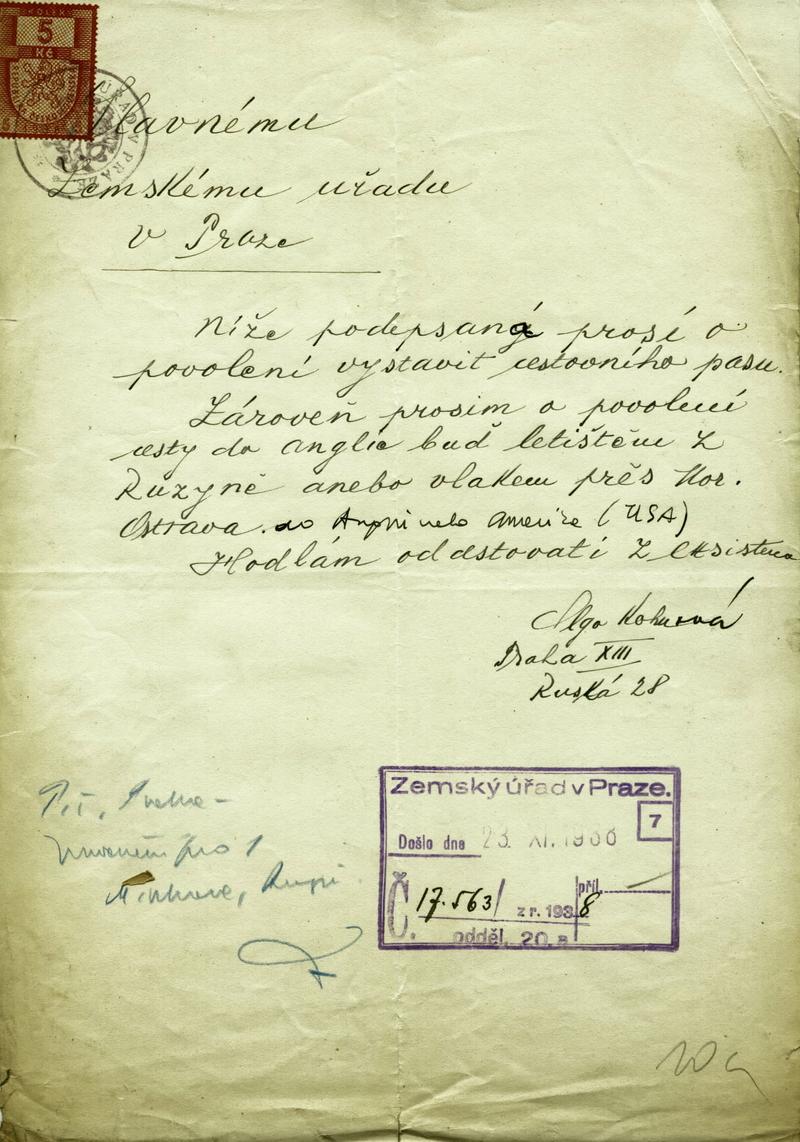 KOLEK
5
Kč
ÚŘAD V PRAZE
Slavnému
Zemskému uřadu
v Praze
Níže podepsaná prosí o
povolení vystavit cestovního pasu.
Zároveň prosím o povolení
cesty do anglie buď letištěm z
Ruzyně anebo vlakem přes Mor.
Ostrava. do Anglie nebo Americe (USA)
Hodlám odcestovati z eksistenc
Olga
Praha XIII
Ruská 28
Zemský úřad v Praze.
7
Došlo dne 23. XI. 1938
Č. 17.563/ z r. 1938 příl.
odděl. 20. a